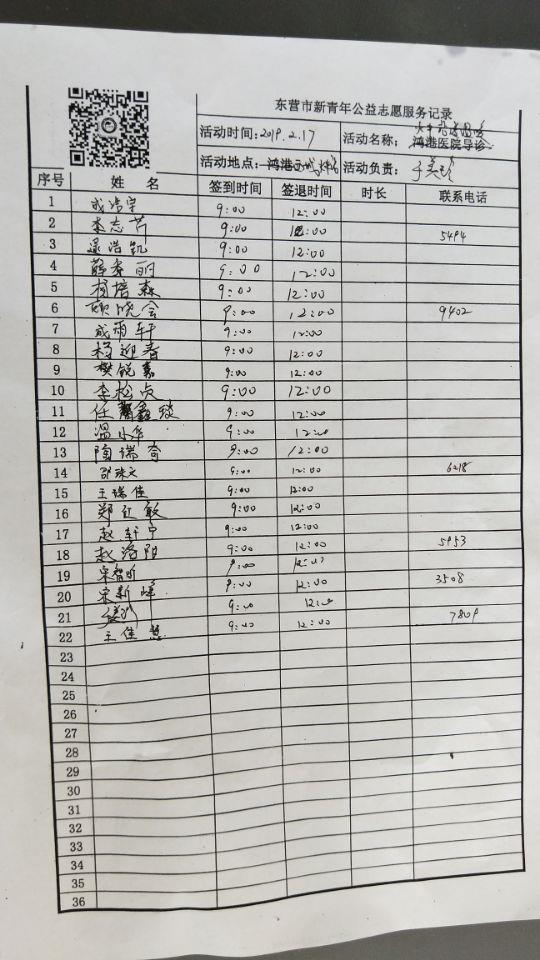 东营市新青年公益志愿服务记录
活动时间:2019.2.17 活动名称: 鸿港医院导诊
活动地点: 鸿港 活动负责:
序号 姓 名 签到时间 签退时间 时长 联系电话
1 成浩宇 9:00 12:00
2 李志芹 9:00 12:00 5494
3 逯浩凯 9:00 12:00
4 薛秀丽 9:00 12:00
5 杨培森 9:00 12:00
6 顾晓会 9:00 12:00 9402
7 成雨轩 9:00 12:00
8 杨迎春 9:00 12:00
9 樊锐嘉 9:00 12:00
10 李松贞 9:00 12:00
11 任 鑫 9:00 12:00
12 温小华 9:00 12:00
13 陶瑞奇 9:00 12:00
14 邵珠文 9:00 12:00 6218
15 王瑞佳 9:00 12:00
16 郑红敏 9:00 12:00
17 赵轩宁 9:00 12:00
18 赵洛阳 9:00 12:00 5953
19 宋智昕 9:00 12:00
20 宋新峰 9:00 12:00 3508
21 9:00 12:00
22 王佳慧 9:00 12:00 7809
23
24
25
26
27
28
29
30
31
32
33
34
35
36